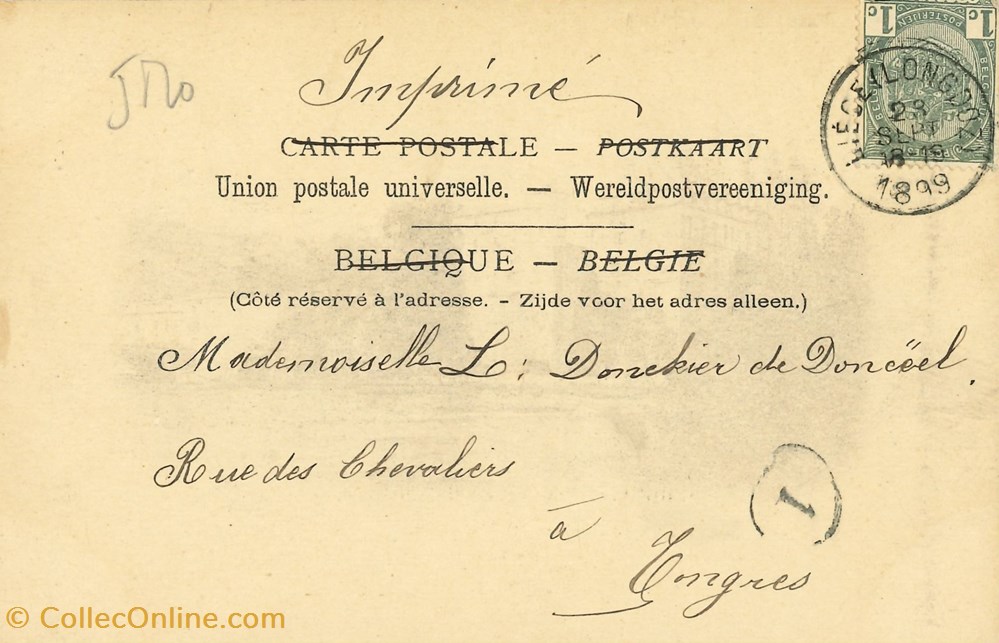 Imprimé
CARTE POSTALE — POSTKAART
Union postale universelle. — Wereldpostvereeniging.
BELGIQUE — BELGIE
(Côté réservé à l'adresse. - Zijde voor het adres alleen.)
Mademoiselle L: Donckier de Doncéel.
Rue des Chevaliers
à
Tongres
1c 1c
POSTERIJEN
LIÉGE (LONGDOZ)
28
SEPT
1899
1
© CollecOnline.com